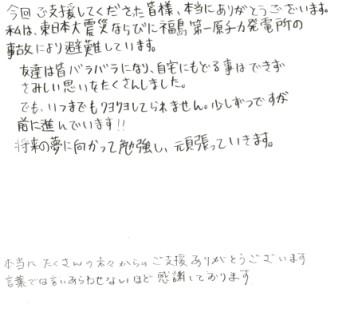 今回ご支援してくださた皆様、本当にありがとうございます。
私は、東日本大震災ならびに福島第一原子力発電所の
事故により避難しています。
友達は皆バラバラになり、自宅にもどる事はできず
さみしい思いをたくさんしました。
でも、いつまでもクヨクヨしてられません。少しずつですが
前に進んでいます!!
将来の夢に向かって勉強し、頑張っていきます。
本当にたくさんの方々からのご支援ありがとうございます
言葉では言いあらわせないほど感謝しております